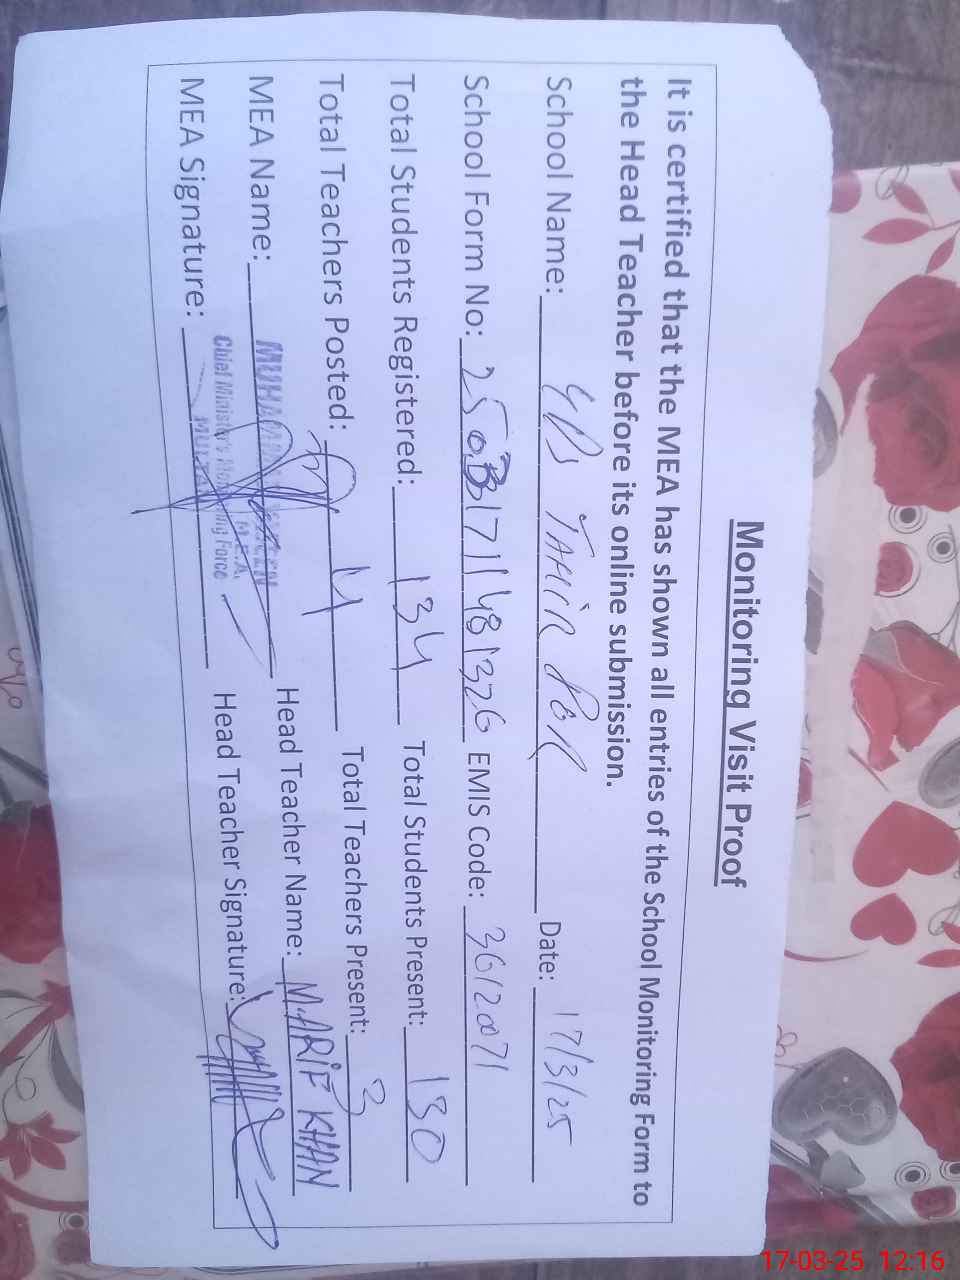 Monitoring Visit Proof
It is certified that the MEA has shown all entries of the School Monitoring Form to
the Head Teacher before its online submission.
School Name: GPS TAHIR POR Date: 17/3/25
School Form No: 2503171481326 EMIS Code: 3612071
Total Students Registered: 134 Total Students Present: 130
Total Teachers Posted: 4 Total Teachers Present: 3
MEA Name: Head Teacher Name: M.ARIF KHAN
M.E.A.
Chief Minister's Monitoring Force
MULTAN
MEA Signature: Head Teacher Signature:
17-03-25 12:16